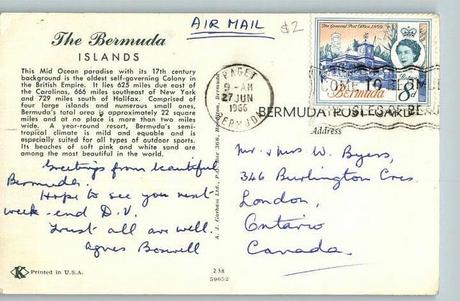 AIR MAIL
$2
The Bermuda
ISLANDS
This Mid Ocean paradise with its 17th century
background is the oldest self-governing Colony in
the British Empire. It lies 625 miles due east of
the Carolinas, 666 miles southeast of New York
and 729 miles south of Halifax. Comprised of
four large islands and numerous small ones,
Bermuda's total area is approximately 22 square
miles and at no place is more than two miles
wide. A year-round resort, Bermuda's semi-
tropical climate is mild and equable and is
especially suited for all types of outdoor sports.
Its beaches of soft pink and white sand are
among the most beautiful in the world.
Greetings from beautiful
Bermuda.
Hope to see you next
week-end D.V.
Trust all are well.
Agnes Boswell
K
Printed in U.S.A.
A. J. Gorham Ltd., P.O. Box 366,
238
59652
PAGET
9-AM
27 JUN
1966
BERMUDA
The General Post Office, 1869
Bermuda
8D
BERMUDA POSTCARD
Address
Mr. & Mrs W. Byers,
346 Burlington Cres.
London,
Ontario
Canada.